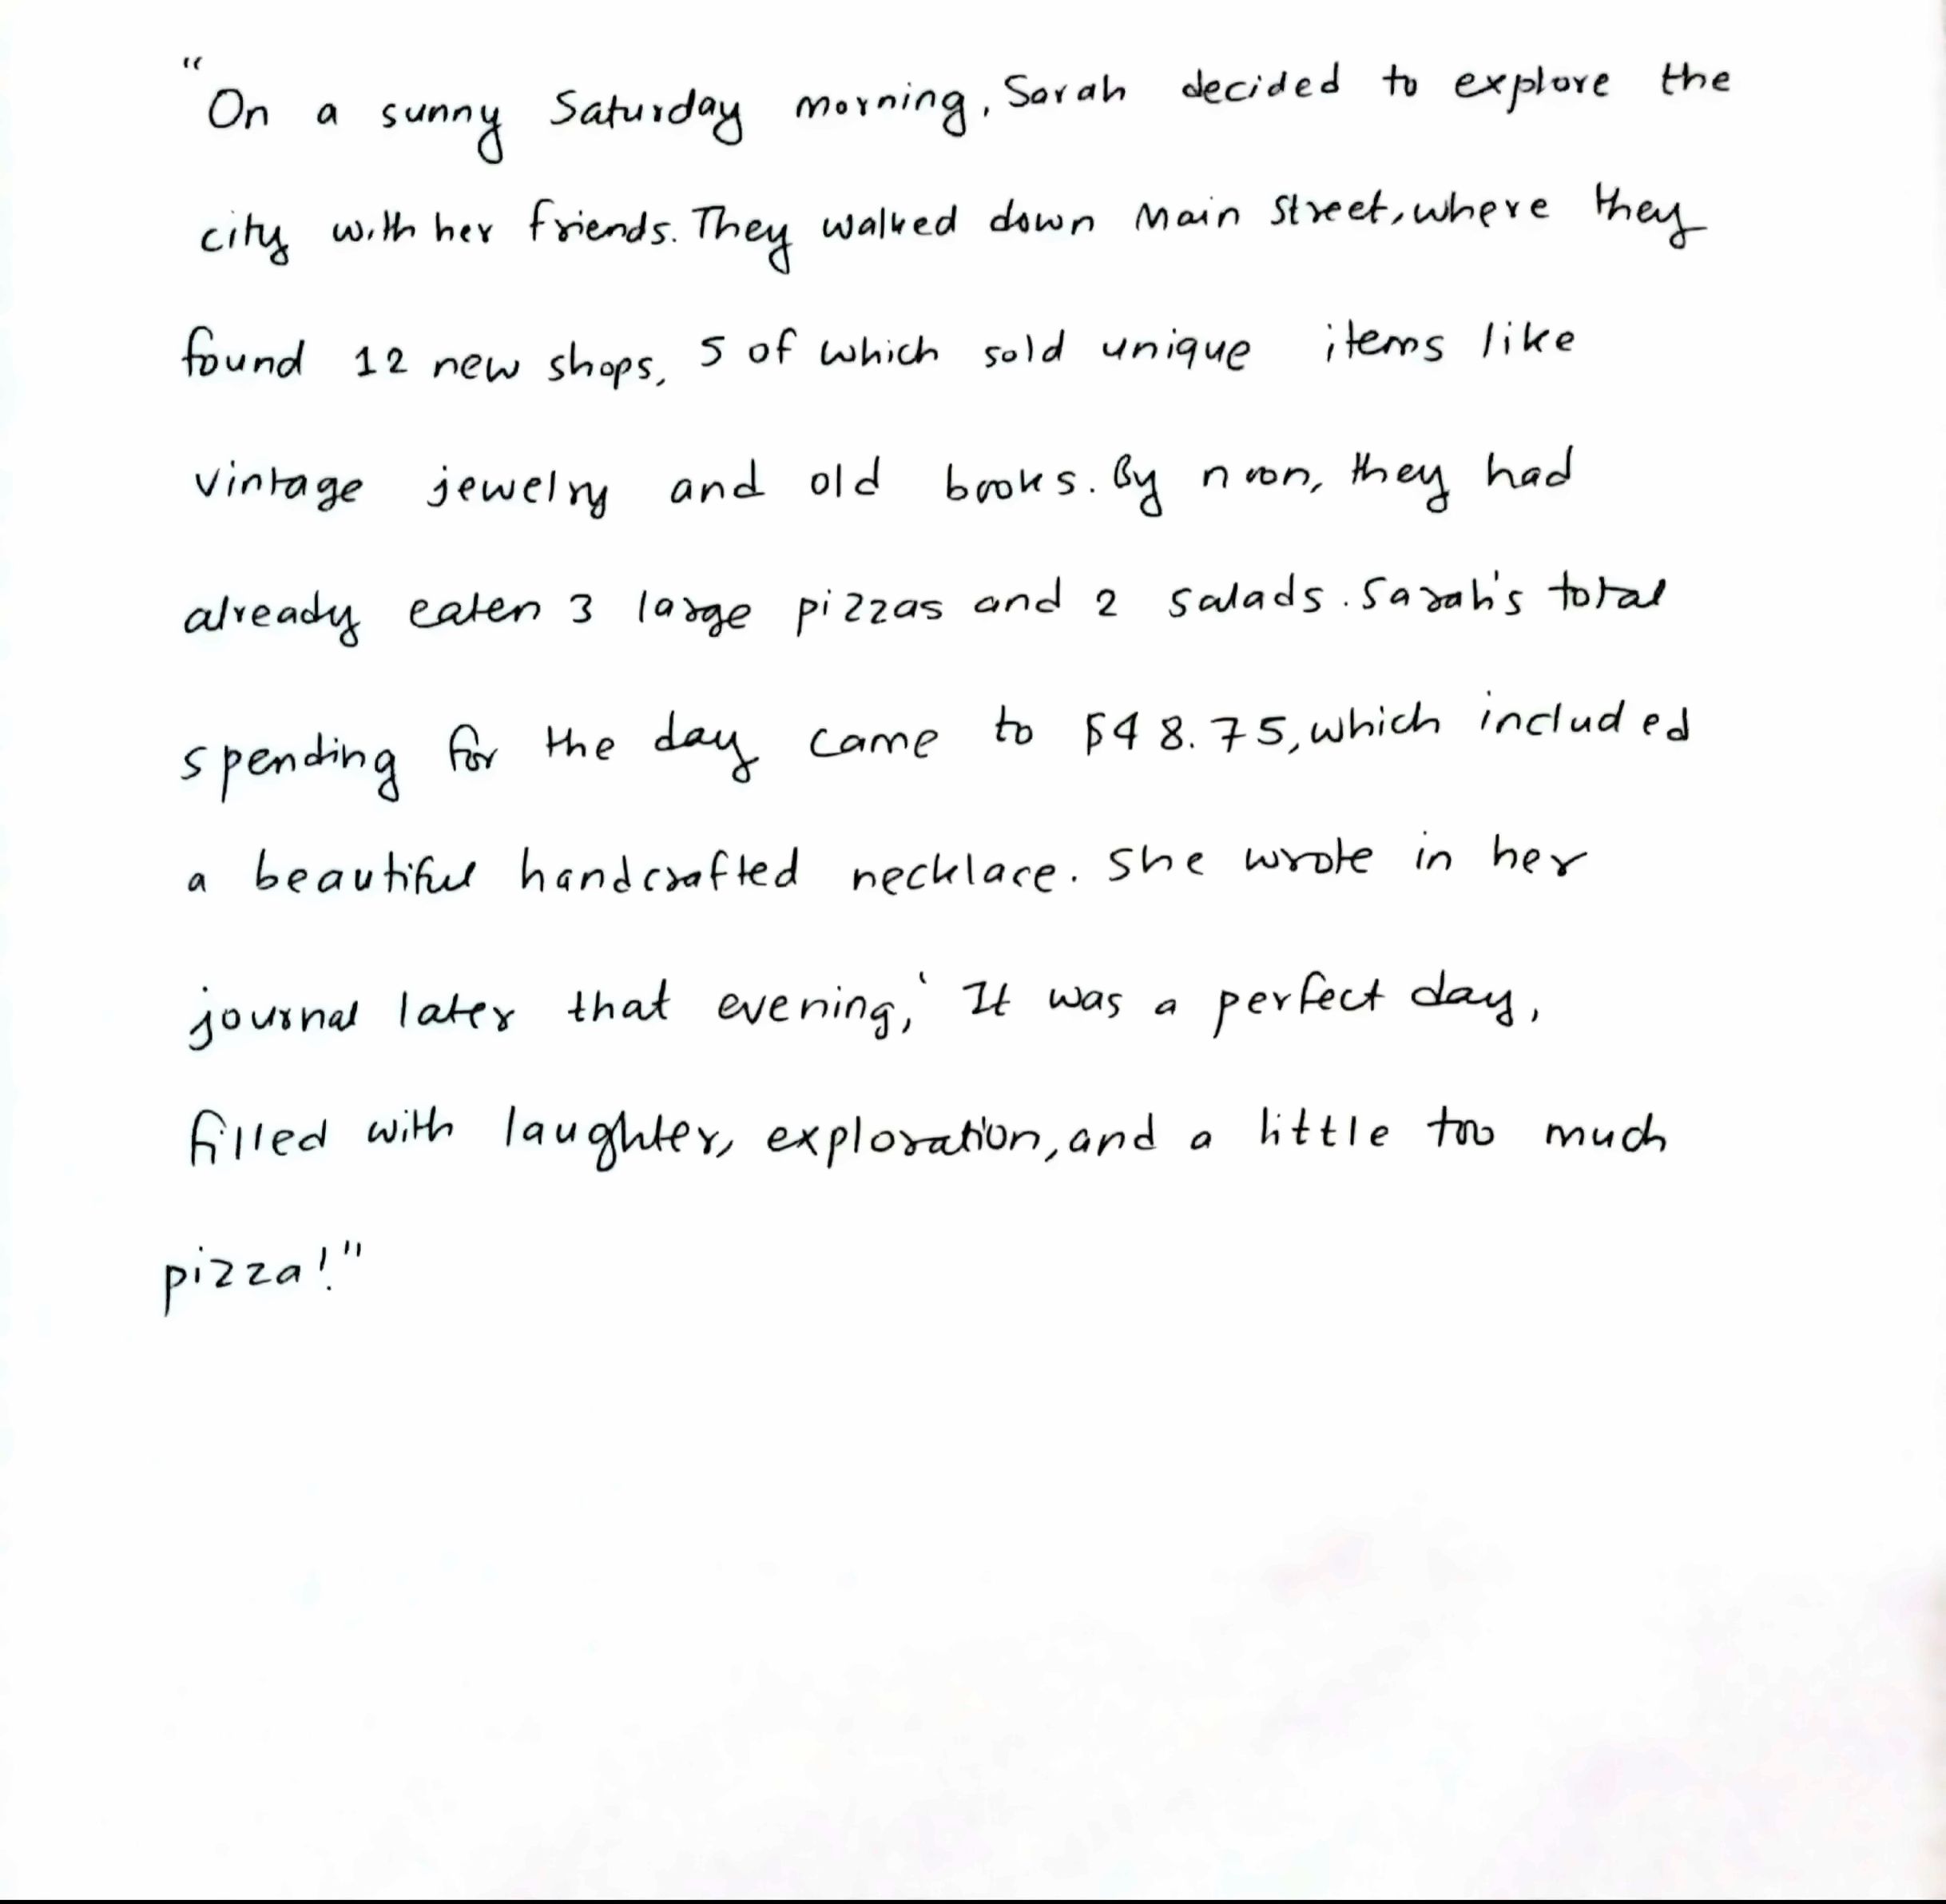 "On a sunny Saturday morning, Sarah decided to explore the
city with her friends. They walked down Main Street, where they
found 12 new shops, 5 of which sold unique items like
vintage jewelry and old books. By noon, they had
already eaten 3 large pizzas and 2 salads. Sarah's total
spending for the day came to $48.75, which included
a beautiful handcrafted necklace. She wrote in her
journal later that evening, ' It was a perfect day,
filled with laughter, exploration, and a little too much
pizza!"